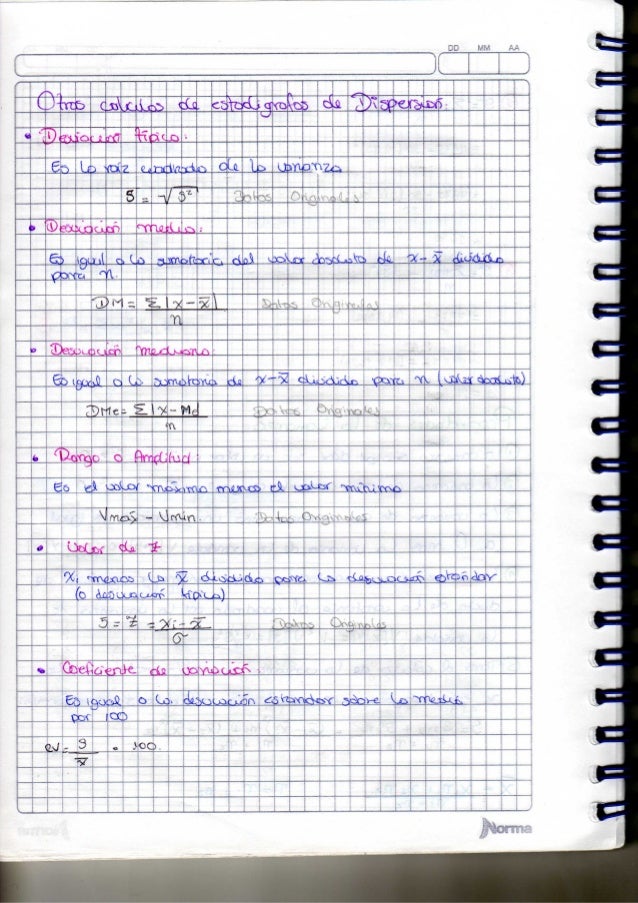 DD MM AA
Otros calculos de estadigrafos de Dispersión.
• Desviación típica:
Es la raíz cuadrada de la varianza
S = √S² Datos Originales
• Desviación media:
Es igual a la sumatoria del valor absoluto de x - x̄ dividido
para n.
DM = Σ|x - x̄| Datos Originales
n
• Desviación mediana:
Es igual a la sumatoria de x - x̄ dividido para n (valor absoluto)
DMe = Σ|x - Md Datos Originales
n
• Rango o Amplitud:
Es el valor máximo menos el valor mínimo
Vmaś - Vmín. Datos Originales
• Valor de Z
Xi menos la x̄ dividido para la desviación estándar
(o desviación típica)
S = Z = xi - x̄ Datos Originales
σ
• Coeficiente de variación.
Es igual a la desviación estandar sobre la media
por 100
CV = S • 100.
x̄
Norma